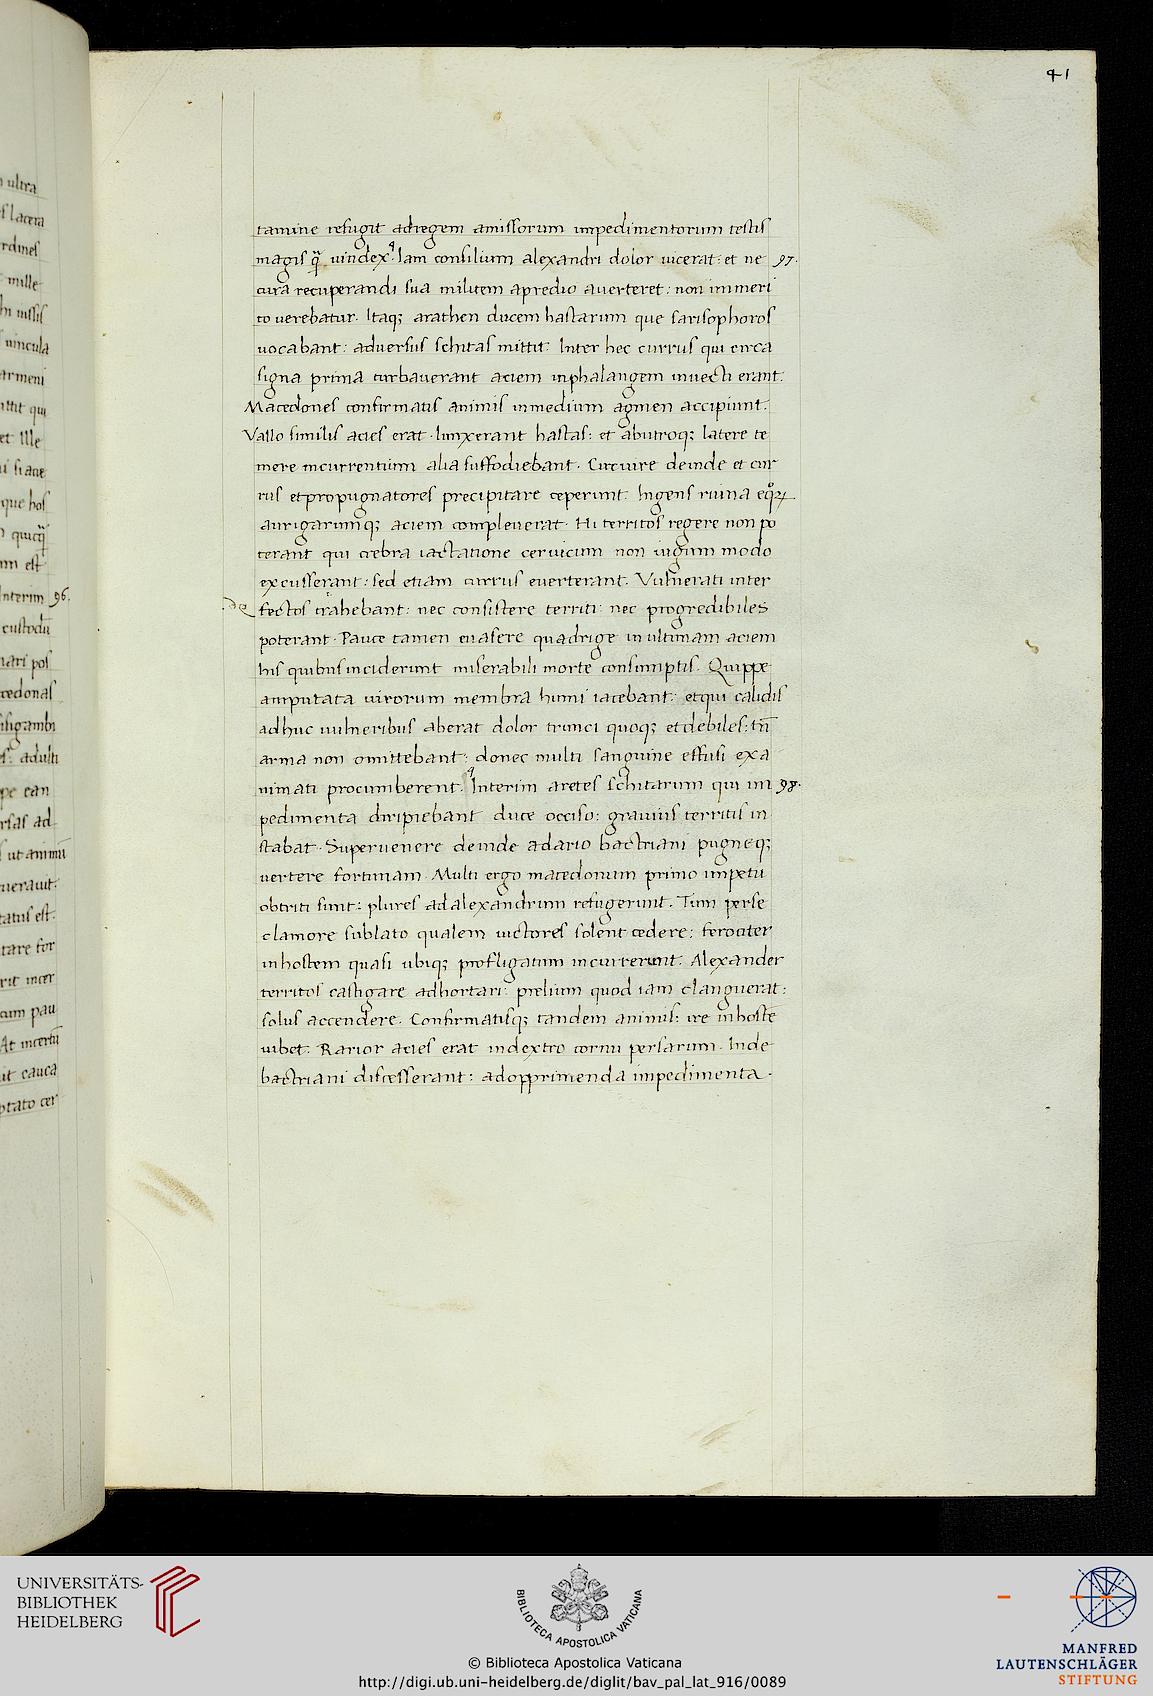 41
tamine refugit adregem amissorum impedimentorum testis
magis q̃ uindex. Iam consilium alexandri dolor uicerat: et ne 97.
cura recuperandi sua militem apredio auerteret: non immeri
to uerebatur. Itaq; arathen ducem hastarum que sarisophoros
uocabant: aduersus schitas mittit. Inter hec currus qui circa
signa prima turbauerant aciem inphalangem inuecti erant.
Macedones confirmatis animis inmedium agmen accipiunt.
Vallo similis acies erat. Iunxerant hastas: et abutroq; latere te
mere incurrentium alia suffodiebant. Circuire deinde et cur
rus et propugnatores precipitare ceperunt. Ingens ruina equoꝝ
aurigarumq; aciem compleuerat. Hi territos regere non po
terant qui crebra iactatione ceruicum non iugum modo
excusserant: sed etiam currus euerterant. Vulnerati inter
fectos trahebant: nec consistere territi: nec progredibiles
poterant. Pauce tamen euasere quadrige in ultimam aciem
his quibus inciderunt miserabili morte consumptis. Quippe
amputata uirorum membra humi iacebant: et qui calidis
adhuc uulneribus aberat dolor trunci quoq; et debiles: tñ
arma non omittebant: donec multi sanguine effusi exa
nimati procumberent. Interim aretes schitarum qui im 98.
pedimenta diripiebant duce occiso: grauius territis in
stabat. Superuenere deinde adario bactriani pugneq;
uertere fortunam. Multi ergo macedonum primo impetu
obtriti sunt: plures adalexandrum refugerunt. Tum perse
clamore sublato qualem uictores solent cedere: ferociter
inhostem quasi ubiq; profligatum incurrerunt. Alexander
territos castigare adhortari: prelium quod iam clanguerat:
solus accendere. Confirmatisq; tandem animis: ire inhostē
iubet. Rarior acies erat indextro cornu persarum. Inde
bactriani discesserant: adopprimenda impedimenta.
ultra
lacera
rdines
mille
uincula
armeni
que hos
Interim 96.
custodū
cedonas
sisigambi
adulti
UNIVERSITÄTS-
BIBLIOTHEK
HEIDELBERG
BIBLIOTECA APOSTOLICA VATICANA
© Biblioteca Apostolica Vaticana
http://digi.ub.uni-heidelberg.de/diglit/bav_pal_lat_916/0089
MANFRED
LAUTENSCHLÄGER
STIFTUNG